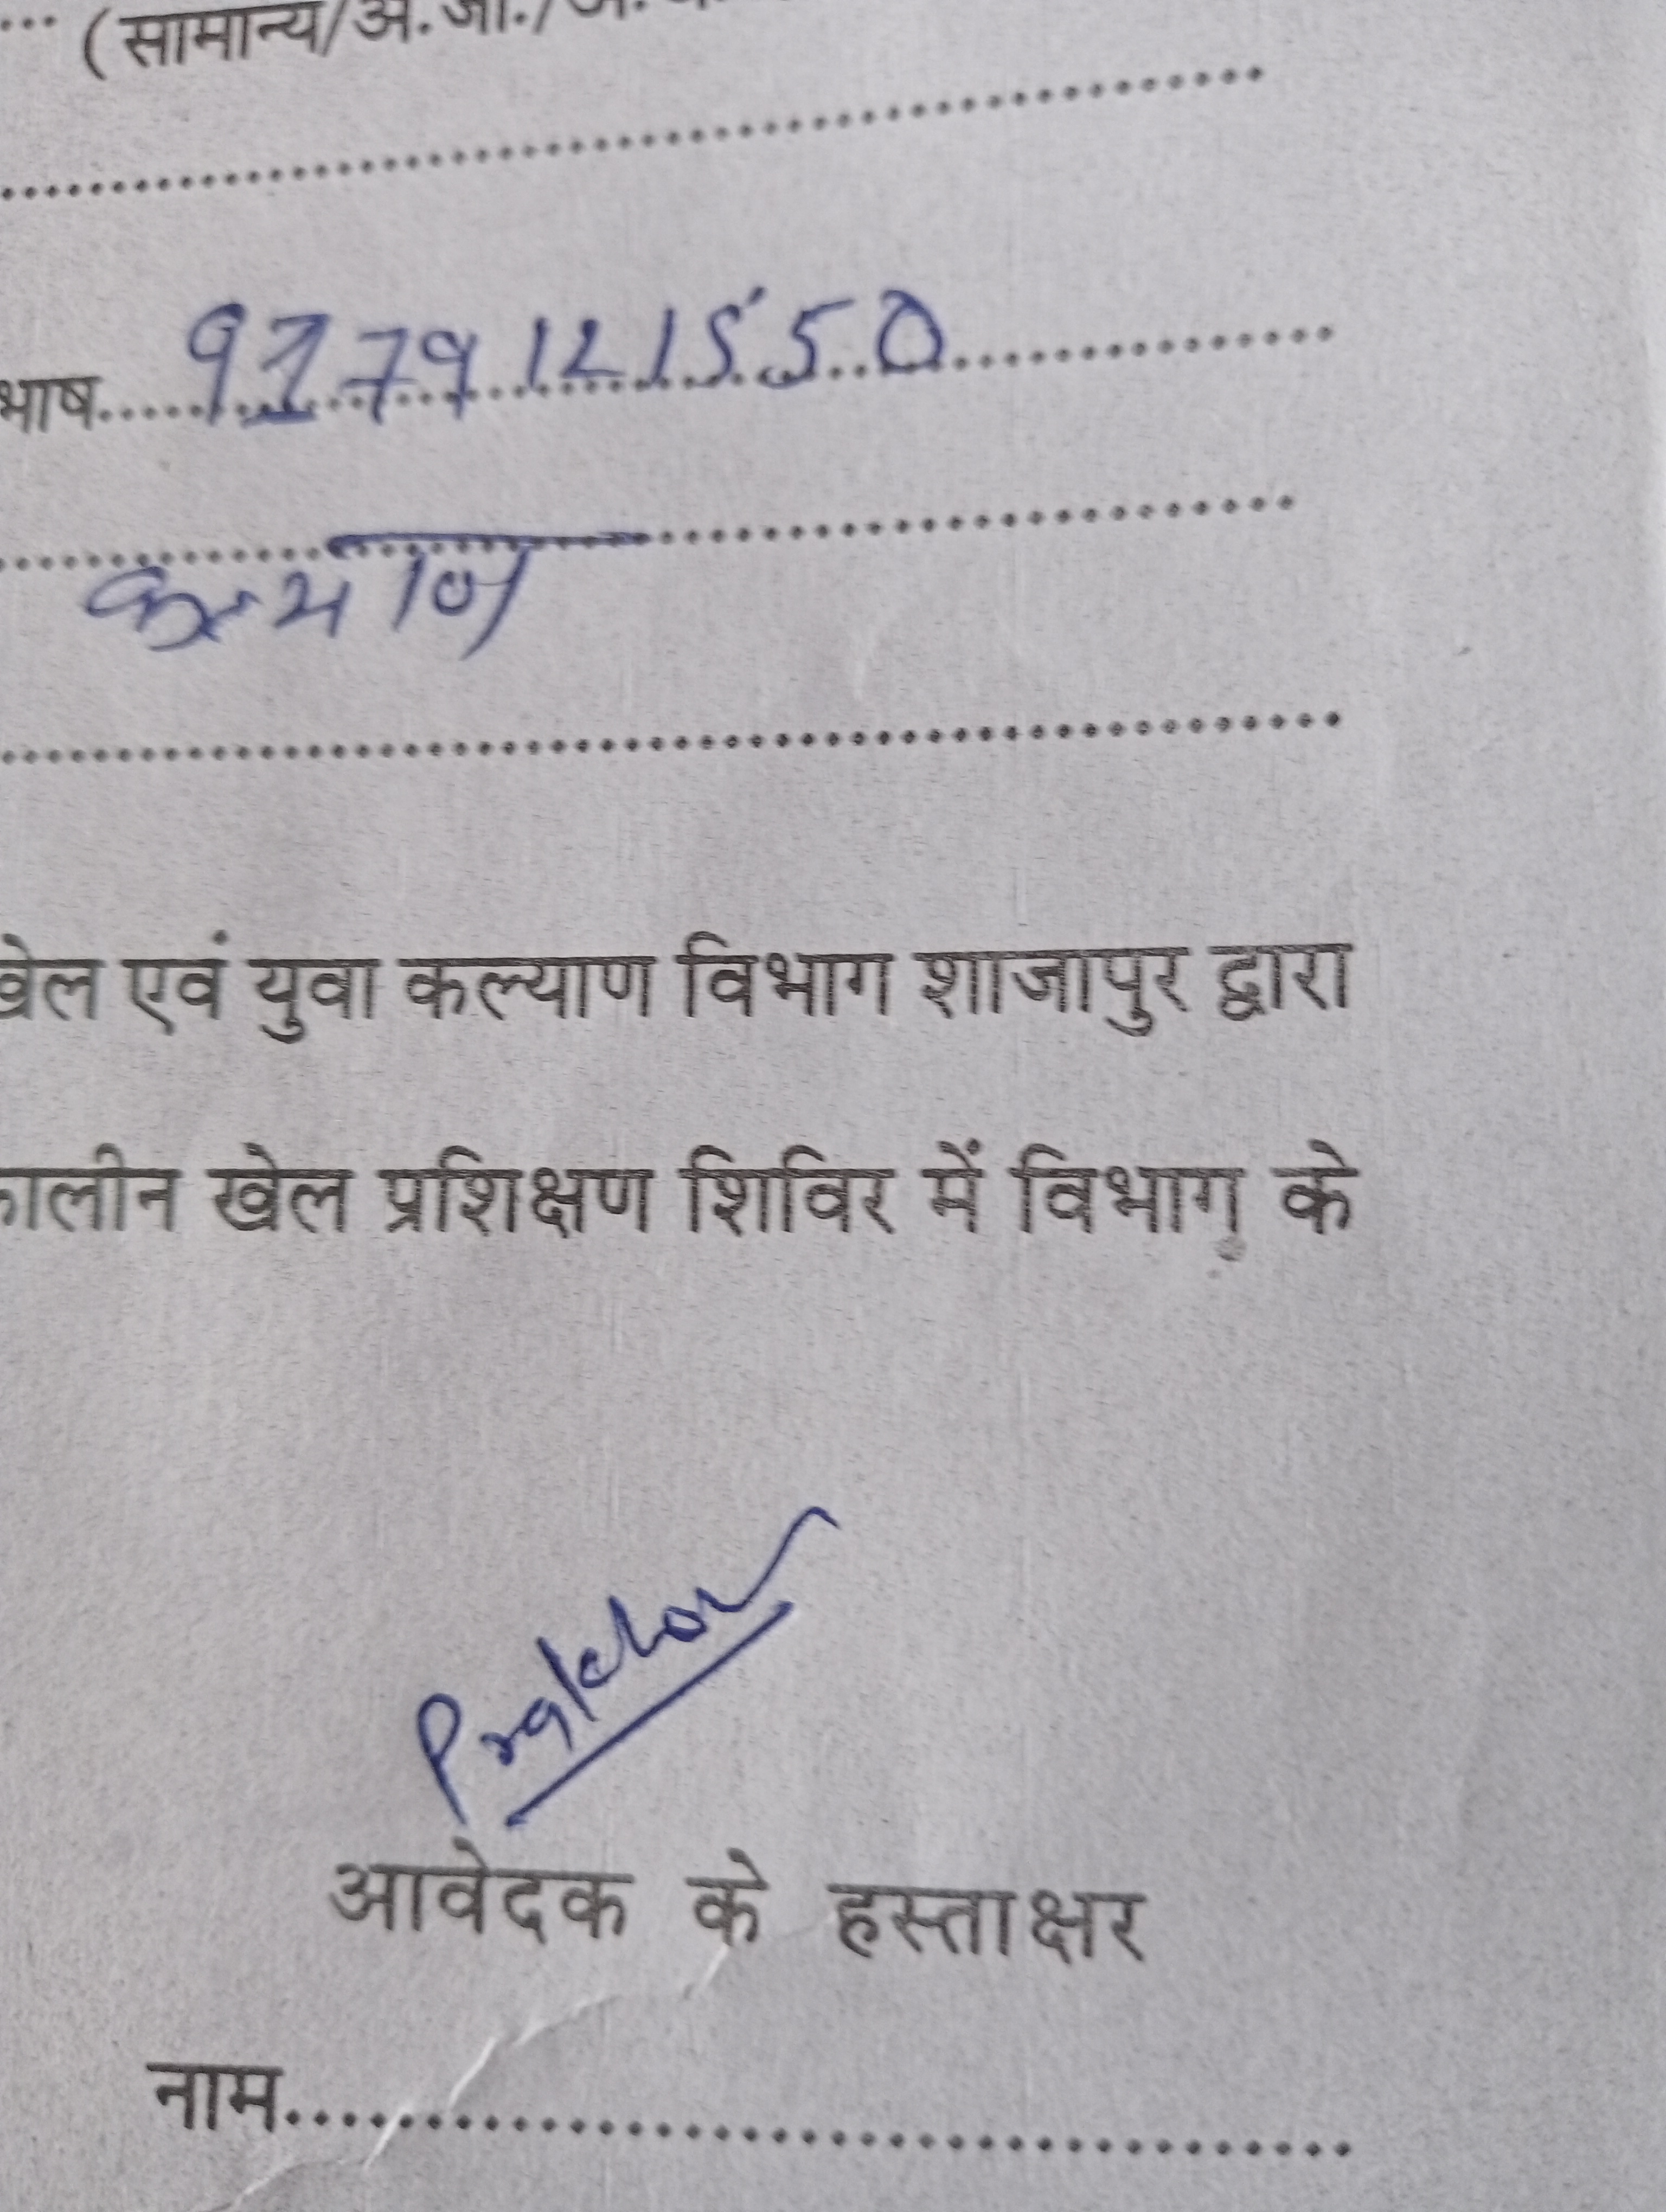 ... (सामान्य/अ.जा./
भाष..... 9179121550
कल्याण
खेल एवं युवा कल्याण विभाग शाजापुर द्वारा
कालीन खेल प्रशिक्षण शिविर में विभाग के
Prakhar
आवेदक के हस्ताक्षर
नाम..........................................